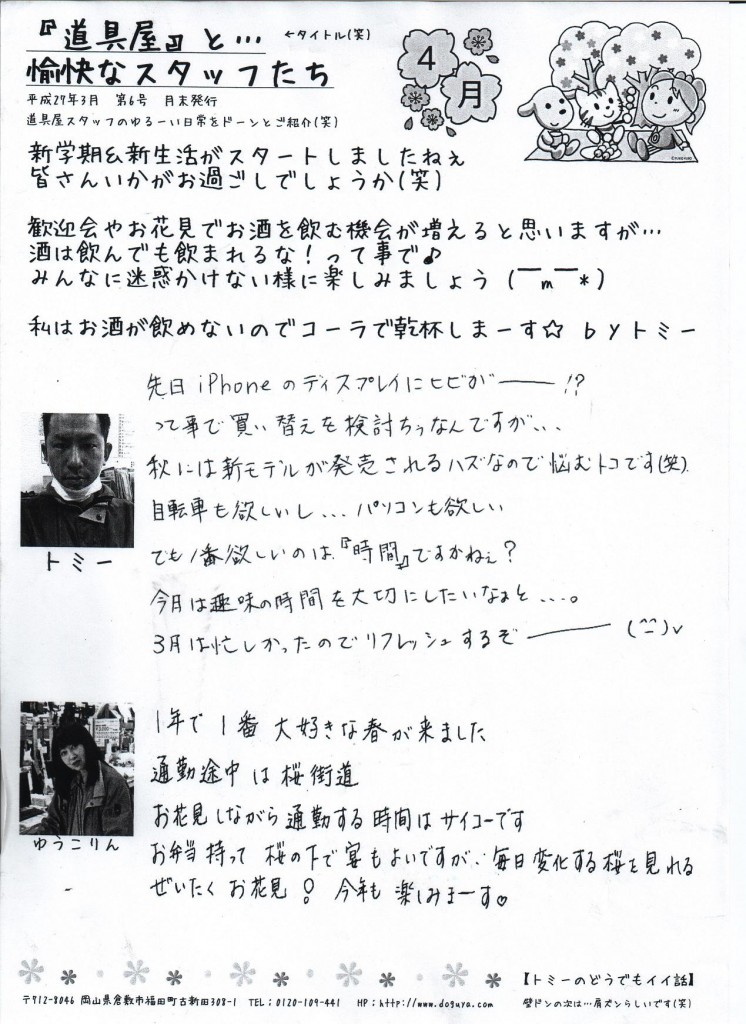 『道具屋』と…
←タイトル(笑)
愉快なスタッフたち
平成27年3月 第6号 月末発行
道具屋スタッフのゆるーい日常をドーンとご紹介(笑)
4月
新学期&新生活がスタートしましたねぇ
皆さんいかがお過ごしでしょうか(笑)
歓迎会やお花見でお酒を飲む機会が増えると思いますが…
酒は飲んでも飲まれるな!って事で♪
みんなに迷惑かけない様に楽しみましょう (￣m￣*)
私はお酒が飲めないのでコーラで乾杯しまーす☆ byトミー
先日iPhoneのディスプレイにヒビが――!?
って事で買い替えを検討ちぅなんですが、、、
秋には新モデルが発売されるハズなので悩むトコです(笑)
自転車も欲しいし、、、パソコンも欲しい
でも1番欲しいのは、『時間』ですかねぇ?
今月は趣味の時間を大切にしたいなぁと、、、。
3月は忙しかったのでリフレッシュするぞ――― (^-^)v
トミー
1年で1番 大好きな春が来ました
通勤途中は桜街道
お花見しながら通勤する時間はサイコーです
お弁当持って 桜の下で宴もよいですが、毎日変化する桜を見れる
ぜいたくお花見! 今年も楽しみまーす♡
ゆうこりん
〒712-8046 岡山県倉敷市福田町古新田308-1 TEL:0120-109-441 HP:http://www.doguya.com
【トミーのどうでもイイ話】
壁ドンの次は…肩ズンらしいです(笑)